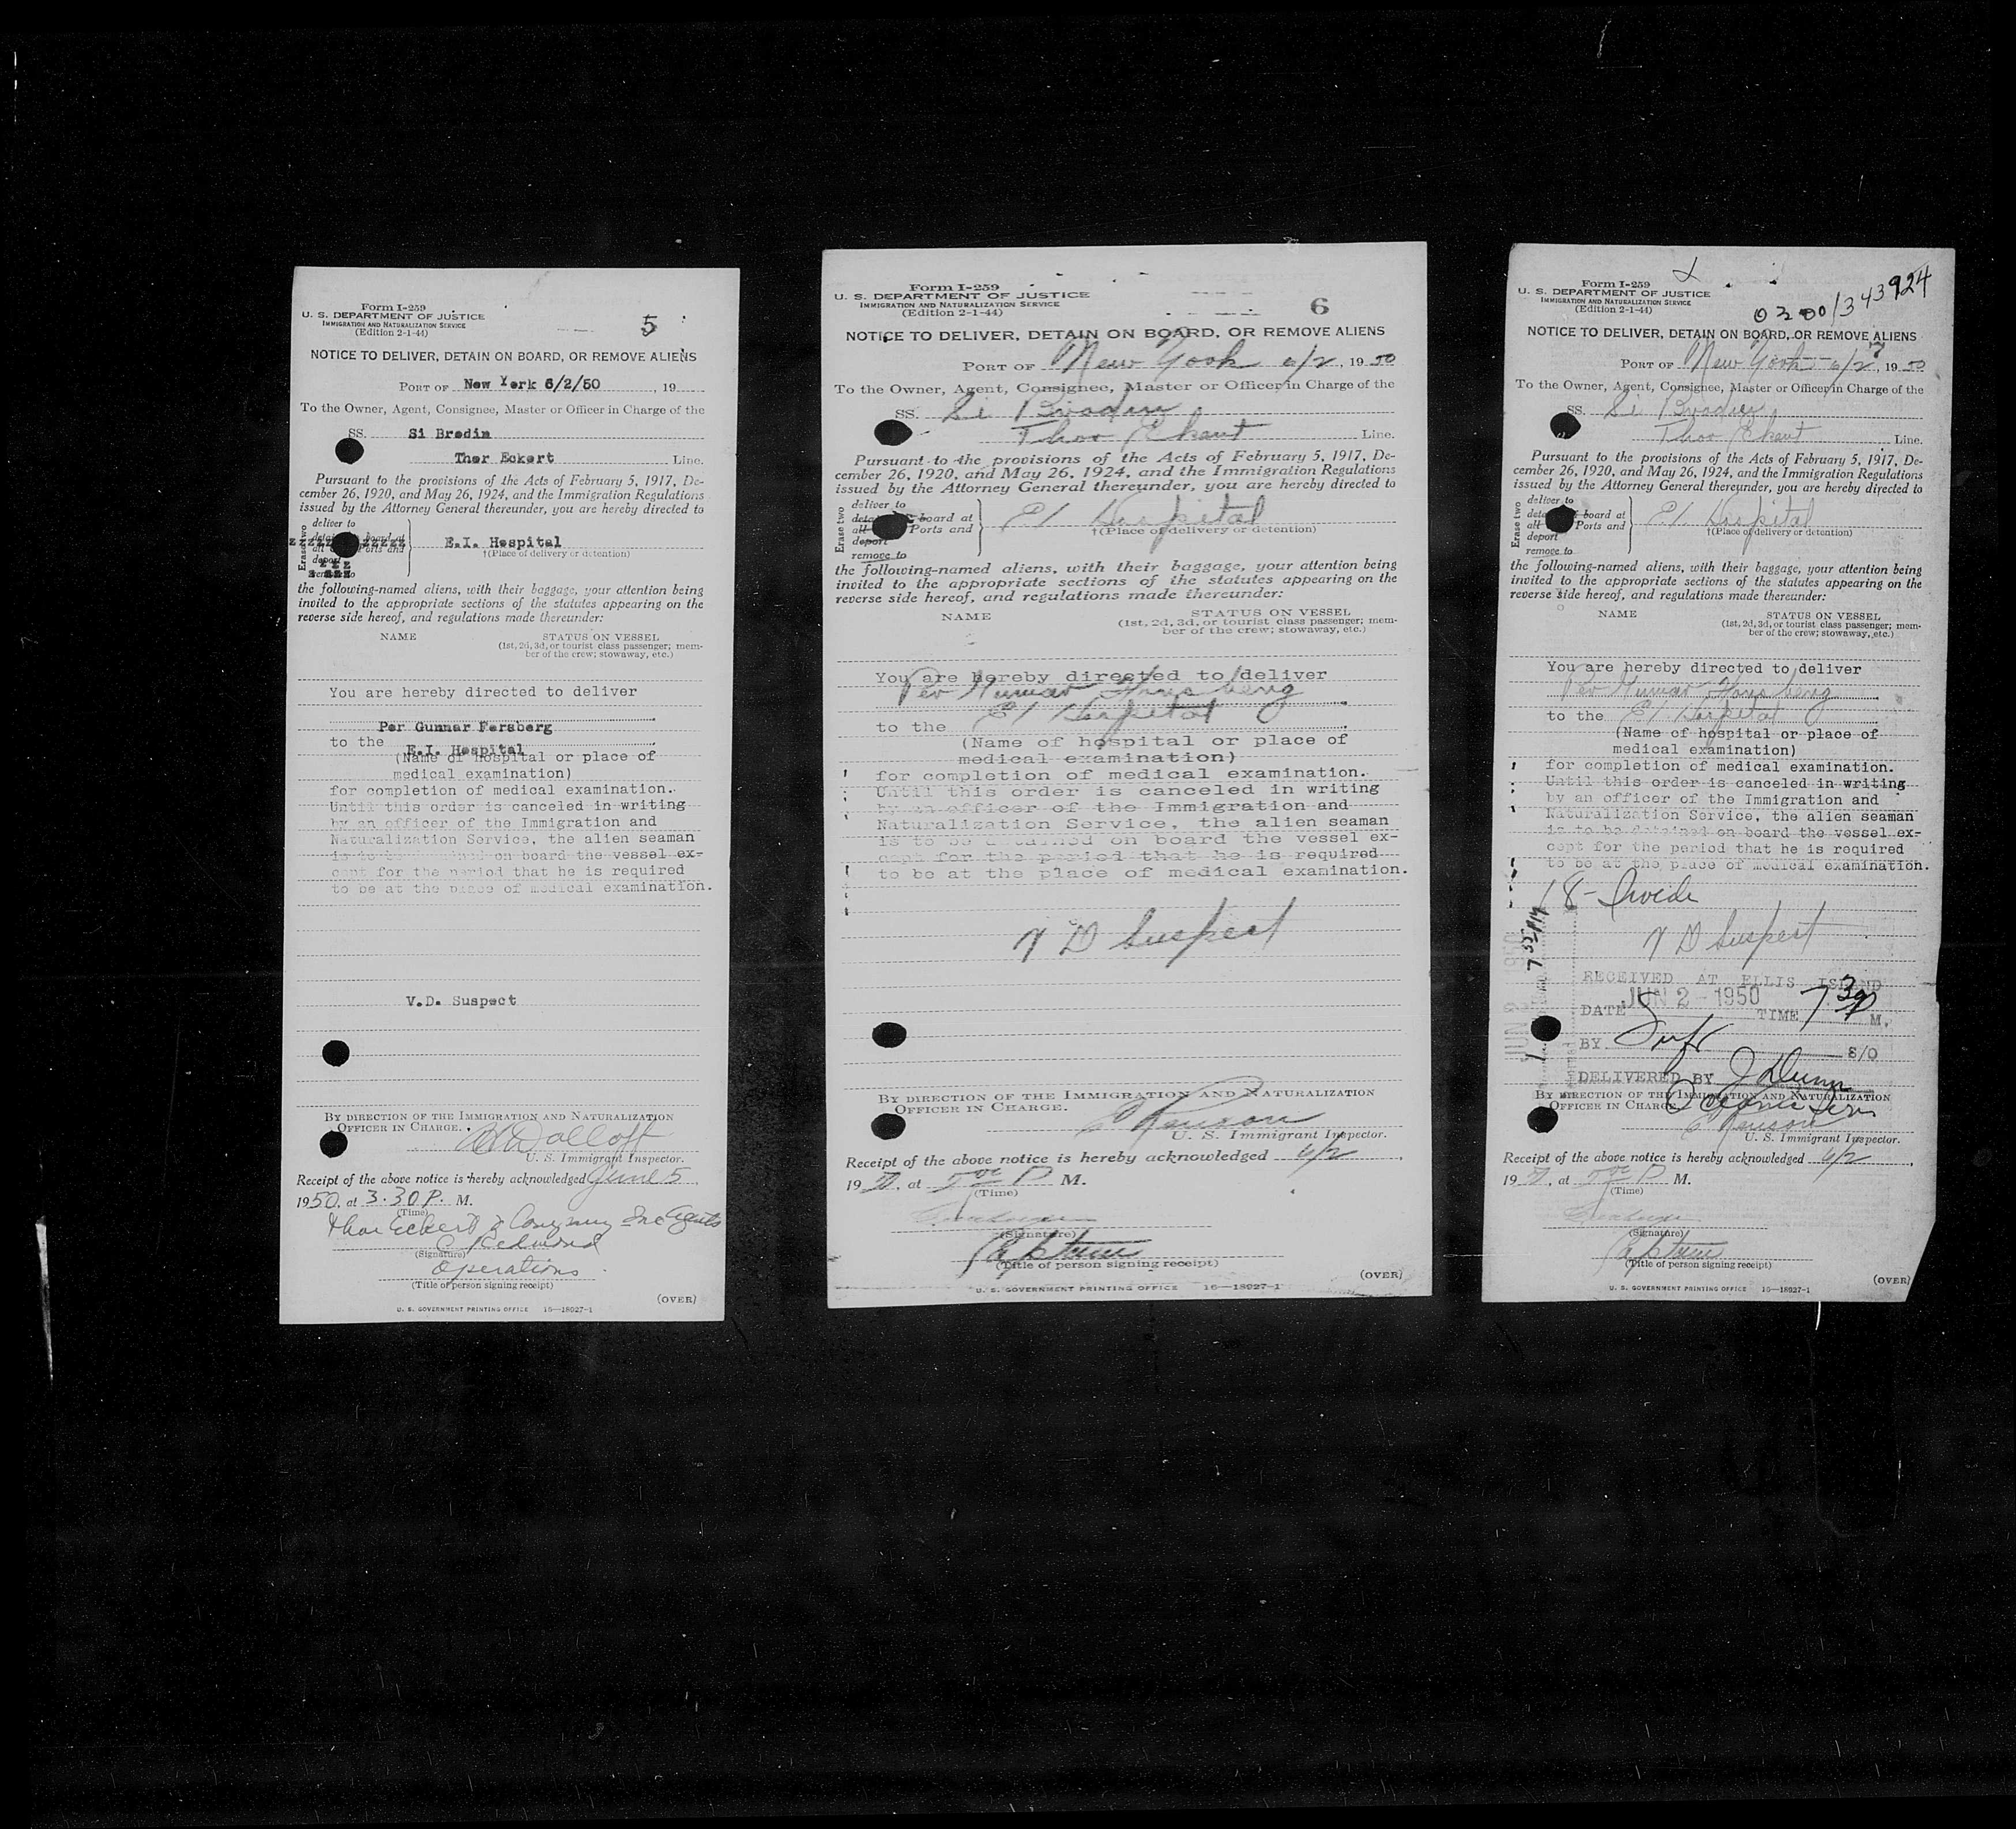 Form I-259
U. S. DEPARTMENT OF JUSTICE
IMMIGRATION AND NATURALIZATION SERVICE
(Edition 2-1-44)
5
NOTICE TO DELIVER, DETAIN ON BOARD, OR REMOVE ALIENS
PORT OF New York 6/2/50, 19
To the Owner, Agent, Consignee, Master or Officer in Charge of the
SS. Si Bredin
Thor Eckert Line.
Pursuant to the provisions of the Acts of February 5, 1917, De-
cember 26, 1920, and May 26, 1924, and the Immigration Regulations
issued by the Attorney General thereunder, you are hereby directed to
Erase two
deliver to
E.I. Hospital
†(Place of delivery or detention)
the following-named aliens, with their baggage, your attention being
invited to the appropriate sections of the statutes appearing on the
reverse side hereof, and regulations made thereunder:
NAME STATUS ON VESSEL
(1st, 2d, 3d, or tourist class passenger; mem-
ber of the crew; stowaway, etc.)
You are hereby directed to deliver
Per Gunnar Forsberg
to the E.I. Hospital
(Name of hospital or place of
medical examination)
for completion of medical examination.
Until this order is canceled in writing
by an officer of the Immigration and
Naturalization Service, the alien seaman
is to be detained on board the vessel ex-
cept for the period that he is required
to be at the place of medical examination.
V.D. Suspect
BY DIRECTION OF THE IMMIGRATION AND NATURALIZATION
OFFICER IN CHARGE.
U. S. Immigrant Inspector.
Receipt of the above notice is hereby acknowledged June 5,
1950, at 3.30 P. M.
(Time)
Thor Eckert & Company Inc Agents
(Signature)
Operations
(Title of person signing receipt)
(OVER)
U. S. GOVERNMENT PRINTING OFFICE 16—18027-1
Form I-259
U. S. DEPARTMENT OF JUSTICE
IMMIGRATION AND NATURALIZATION SERVICE
(Edition 2-1-44)
6
NOTICE TO DELIVER, DETAIN ON BOARD, OR REMOVE ALIENS
PORT OF New York 6/2, 1950
To the Owner, Agent, Consignee, Master or Officer in Charge of the
SS. Si Bredin
Thor Ekert Line.
Pursuant to the provisions of the Acts of February 5, 1917, De-
cember 26, 1920, and May 26, 1924, and the Immigration Regulations
issued by the Attorney General thereunder, you are hereby directed to
Erase two
deliver to
board at
all Ports and
deport
remove to
E I Hospital
†(Place of delivery or detention)
the following-named aliens, with their baggage, your attention being
invited to the appropriate sections of the statutes appearing on the
reverse side hereof, and regulations made thereunder:
NAME STATUS ON VESSEL
(1st, 2d, 3d, or tourist class passenger; mem-
ber of the crew; stowaway, etc.)
You are hereby directed to deliver
Per Gunnar Forsberg
to the E I Hospital
(Name of hospital or place of
medical examination)
for completion of medical examination.
Until this order is canceled in writing
by an officer of the Immigration and
Naturalization Service, the alien seaman
is to be detained on board the vessel ex-
cept for the period that he is required
to be at the place of medical examination.
V D Suspect
BY DIRECTION OF THE IMMIGRATION AND NATURALIZATION
OFFICER IN CHARGE.
U. S. Immigrant Inspector.
Receipt of the above notice is hereby acknowledged 6/2,
1950, at 5 00 P M.
(Time)
(Signature)
Captain
(Title of person signing receipt)
(OVER)
U. S. GOVERNMENT PRINTING OFFICE 16—18027-1
Form I-259
U. S. DEPARTMENT OF JUSTICE
IMMIGRATION AND NATURALIZATION SERVICE
(Edition 2-1-44)
0300/343924
7
NOTICE TO DELIVER, DETAIN ON BOARD, OR REMOVE ALIENS
PORT OF New York 6/2, 1950
To the Owner, Agent, Consignee, Master or Officer in Charge of the
SS. Si Bredin
Thor Ekert Line.
Pursuant to the provisions of the Acts of February 5, 1917, De-
cember 26, 1920, and May 26, 1924, and the Immigration Regulations
issued by the Attorney General thereunder, you are hereby directed to
Erase two
deliver to
board at
all Ports and
deport
remove to
E I Hospital
†(Place of delivery or detention)
the following-named aliens, with their baggage, your attention being
invited to the appropriate sections of the statutes appearing on the
reverse side hereof, and regulations made thereunder:
NAME STATUS ON VESSEL
(1st, 2d, 3d, or tourist class passenger; mem-
ber of the crew; stowaway, etc.)
You are hereby directed to deliver
Per Gunnar Forsberg
to the E I Hospital
(Name of hospital or place of
medical examination)
for completion of medical examination.
Until this order is canceled in writing
by an officer of the Immigration and
Naturalization Service, the alien seaman
is to be detained on board the vessel ex-
cept for the period that he is required
to be at the place of medical examination.
V D Suspect
RECEIVED AT ELLIS ISLAND
DATE JUN 2 - 1950 TIME 7 30 P M.
BY S/O
DELIVERED BY J Dunn
BY DIRECTION OF THE IMMIGRATION AND NATURALIZATION
OFFICER IN CHARGE.
U. S. Immigrant Inspector.
Receipt of the above notice is hereby acknowledged 6/2,
1950, at 5 00 P M.
(Time)
(Signature)
Captain
(Title of person signing receipt)
(OVER)
U. S. GOVERNMENT PRINTING OFFICE 16—18027-1